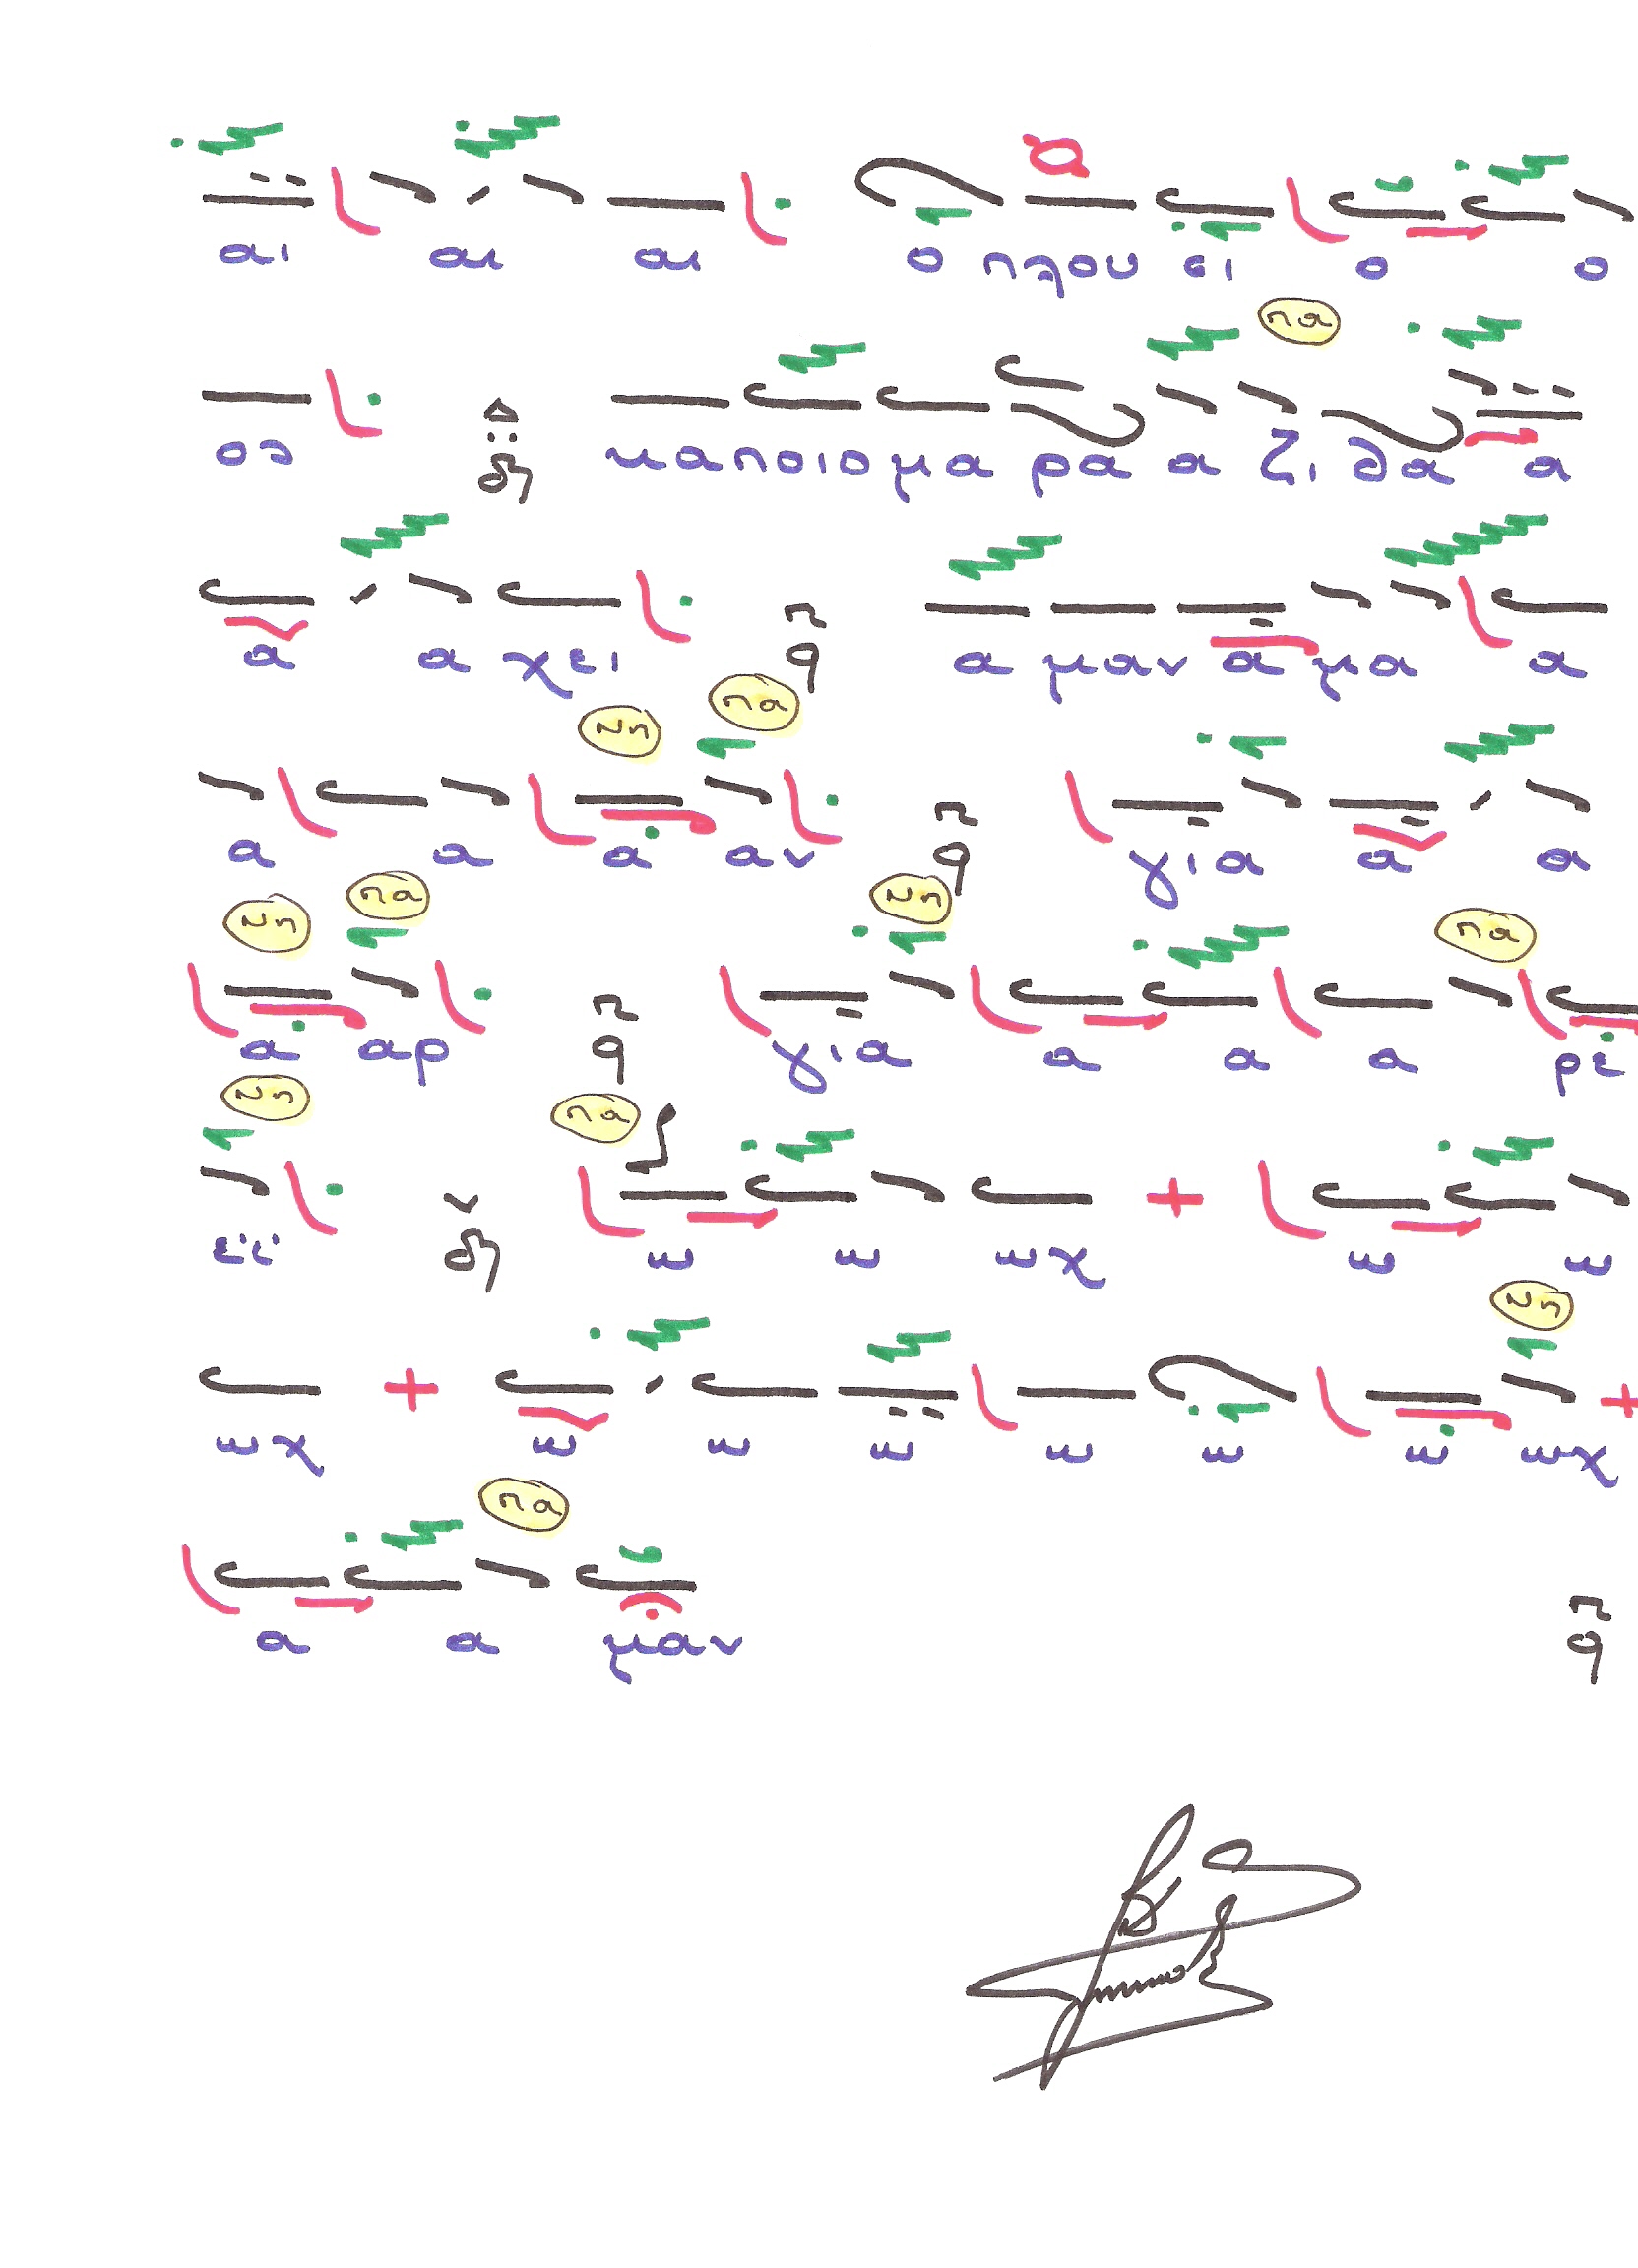 αι αι αι ο πλου σι ο ο
πα
ος Δ δη κα ποιο μα ρα α ζι θα α
α α χει π q α μαν α μα α
Νη πα
α α α αν π q για α α
Νη πα Νη πα
α αρ π q για α α α ρε
Νη πα
εϊ ν δη ω ω ωχ + ω ω
Νη
ωχ + ω ω ω ω ω ω ωχ +
πα
α α μαν π q